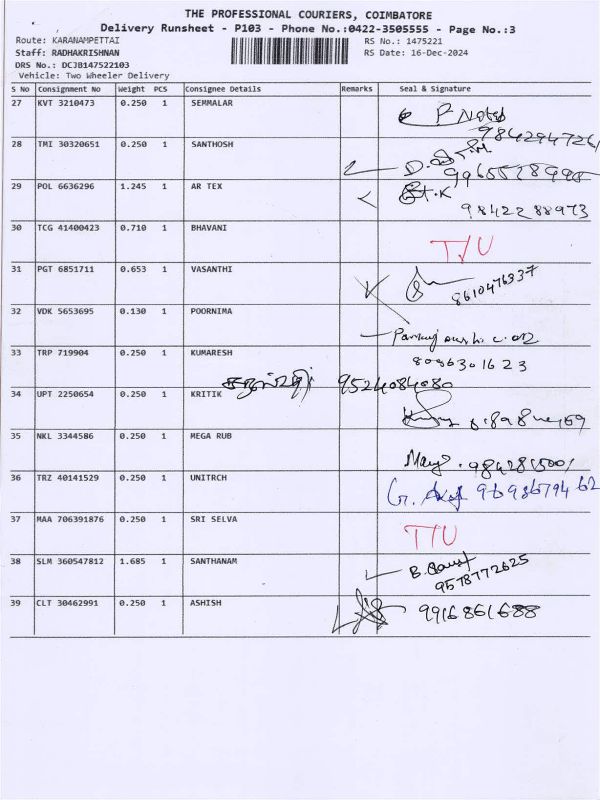 THE PROFESSIONAL COURIERS, COIMBATORE
Delivery Runsheet - P103 - Phone No.:0422-3505555 - Page No.:3
Route: KARANAMPETTAI RS No.: 1475221
Staff: RADHAKRISHNAN RS Date: 16-Dec-2024
DRS No.: DCJB147522103
Vehicle: Two Wheeler Delivery
S No Consignment No Weight PCS Consignee Details Remarks Seal & Signature
27 KVT 3210473 0.250 1 SEMMALAR
28 TMI 30320651 0.250 1 SANTHOSH
29 POL 6636296 1.245 1 AR TEX
98422 88973
30 TCG 41400423 0.710 1 BHAVANI T/U
31 PGT 6851711 0.653 1 VASANTHI
8610476337
32 VDK 5653695 0.130 1 POORNIMA
33 TRP 719904 0.250 1 KUMARESH 8096301623
9524084080
34 UPT 2250654 0.250 1 KRITIK
35 NKL 3344586 0.250 1 MEGA RUB
36 TRZ 40141529 0.250 1 UNITRCH
37 MAA 706391876 0.250 1 SRI SELVA T/U
38 SLM 360547812 1.685 1 SANTHANAM
9578772625
39 CLT 30462991 0.250 1 ASHISH 9916861688